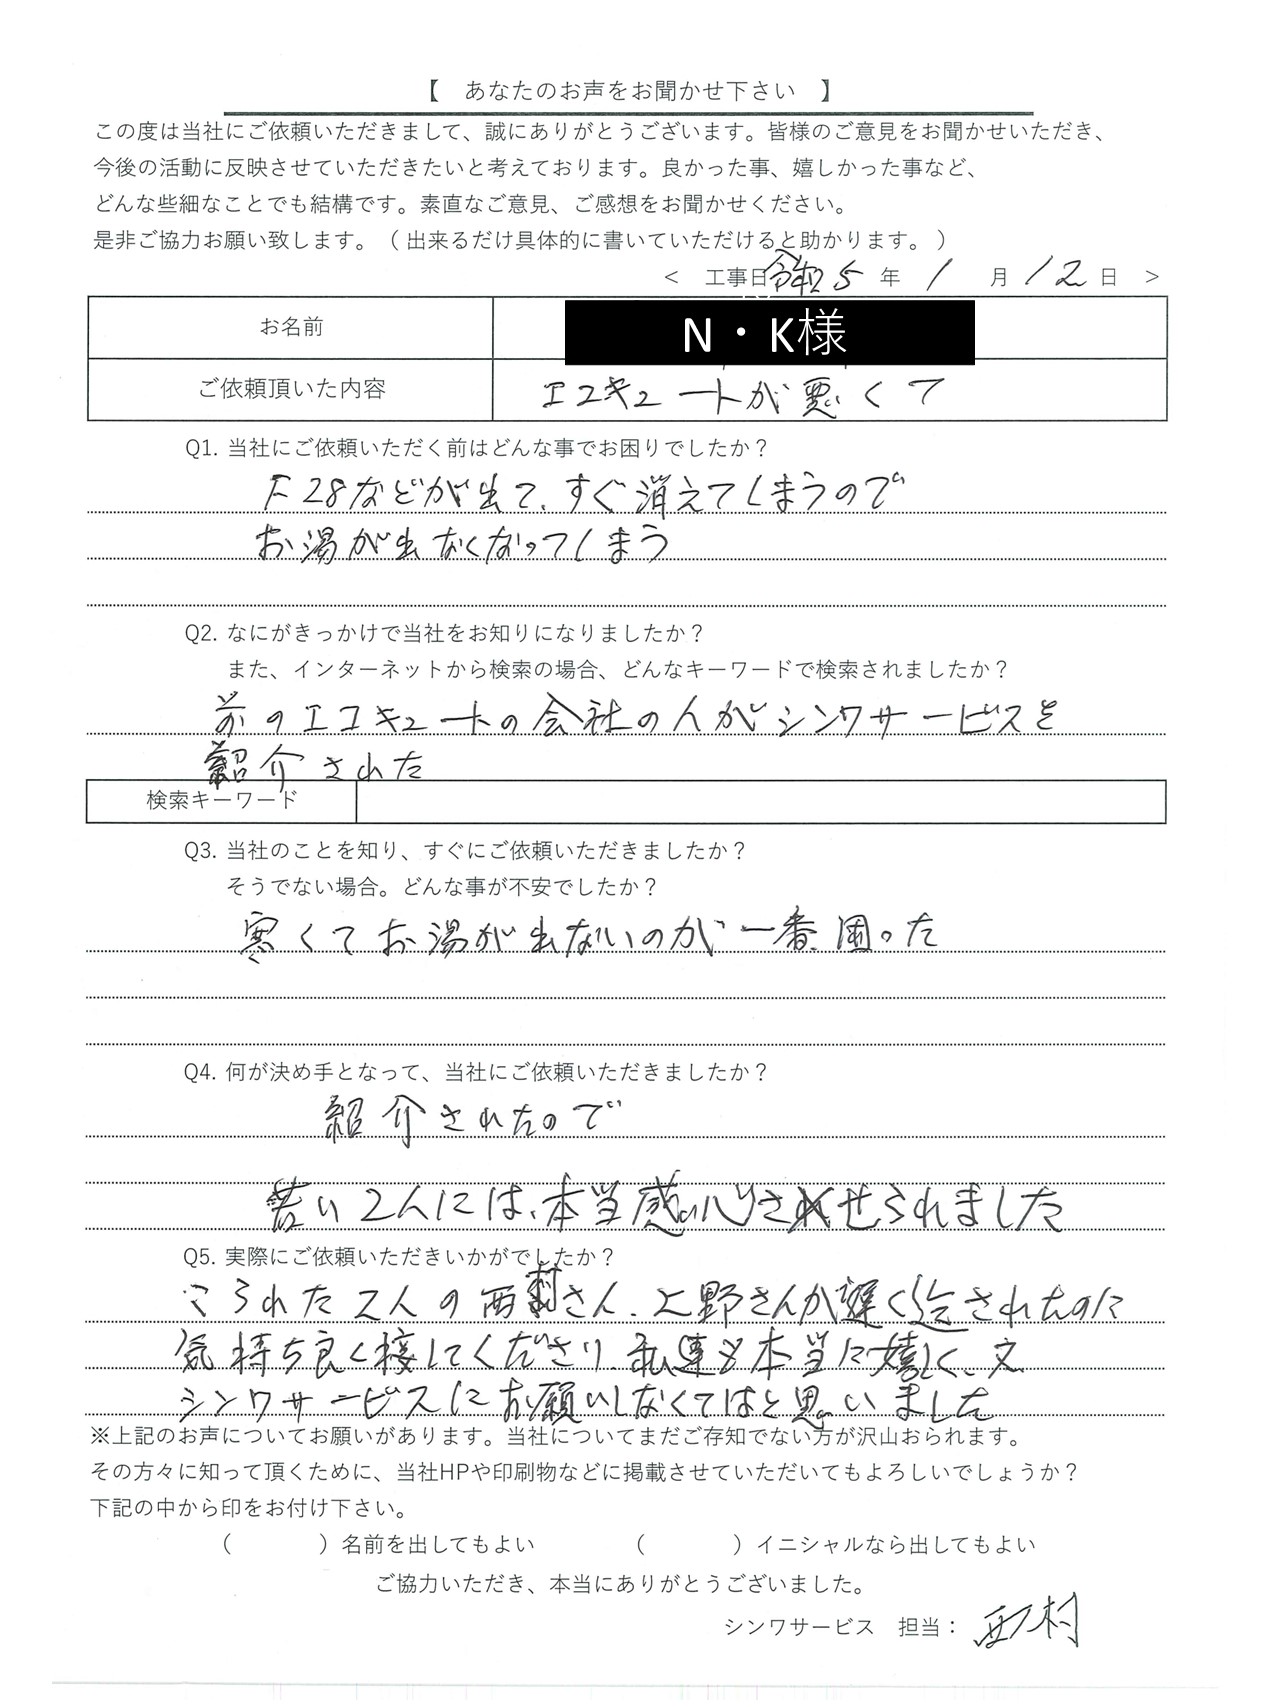 【　あなたのお声をお聞かせ下さい　】
この度は当社にご依頼いただきまして、誠にありがとうございます。皆様のご意見をお聞かせいただき、
今後の活動に反映させていただきたいと考えております。良かった事、嬉しかった事など、
どんな些細なことでも結構です。素直なご意見、ご感想をお聞かせください。
是非ご協力お願い致します。（ 出来るだけ具体的に書いていただけると助かります。 ）
＜　工事日 令和5 年 1 月 12 日　＞
お名前 N・K様
ご依頼頂いた内容 エコキュートが悪くて
Q1. 当社にご依頼いただく前はどんな事でお困りでしたか？
F28などが出て、すぐ消えてしまうので
お湯が出なくなってしまう
Q2. なにがきっかけで当社をお知りになりましたか？
また、インターネットから検索の場合、どんなキーワードで検索されましたか？
前のエコキュートの会社の人がシンワサービスを
紹介された
検索キーワード
Q3. 当社のことを知り、すぐにご依頼いただきましたか？
そうでない場合。どんな事が不安でしたか？
寒くてお湯が出ないのが一番困った
Q4. 何が決め手となって、当社にご依頼いただきましたか？
紹介されたので
若い2人には、本当感心させられました
Q5. 実際にご依頼いただきいかがでしたか？
こられた2人の西村さん、上野さんが遅く迄されたのに
気持ち良く接してくださり、私達も本当に嬉しく、又
シンワサービスにお願いしなくてはと思いました
※上記のお声についてお願いがあります。当社についてまだご存知でない方が沢山おられます。
その方々に知って頂くために、当社HPや印刷物などに掲載させていただいてもよろしいでしょうか？
下記の中から印をお付け下さい。
（　　　　）名前を出してもよい　　　　（　　　　）イニシャルなら出してもよい
ご協力いただき、本当にありがとうございました。
シンワサービス　担当： 西村